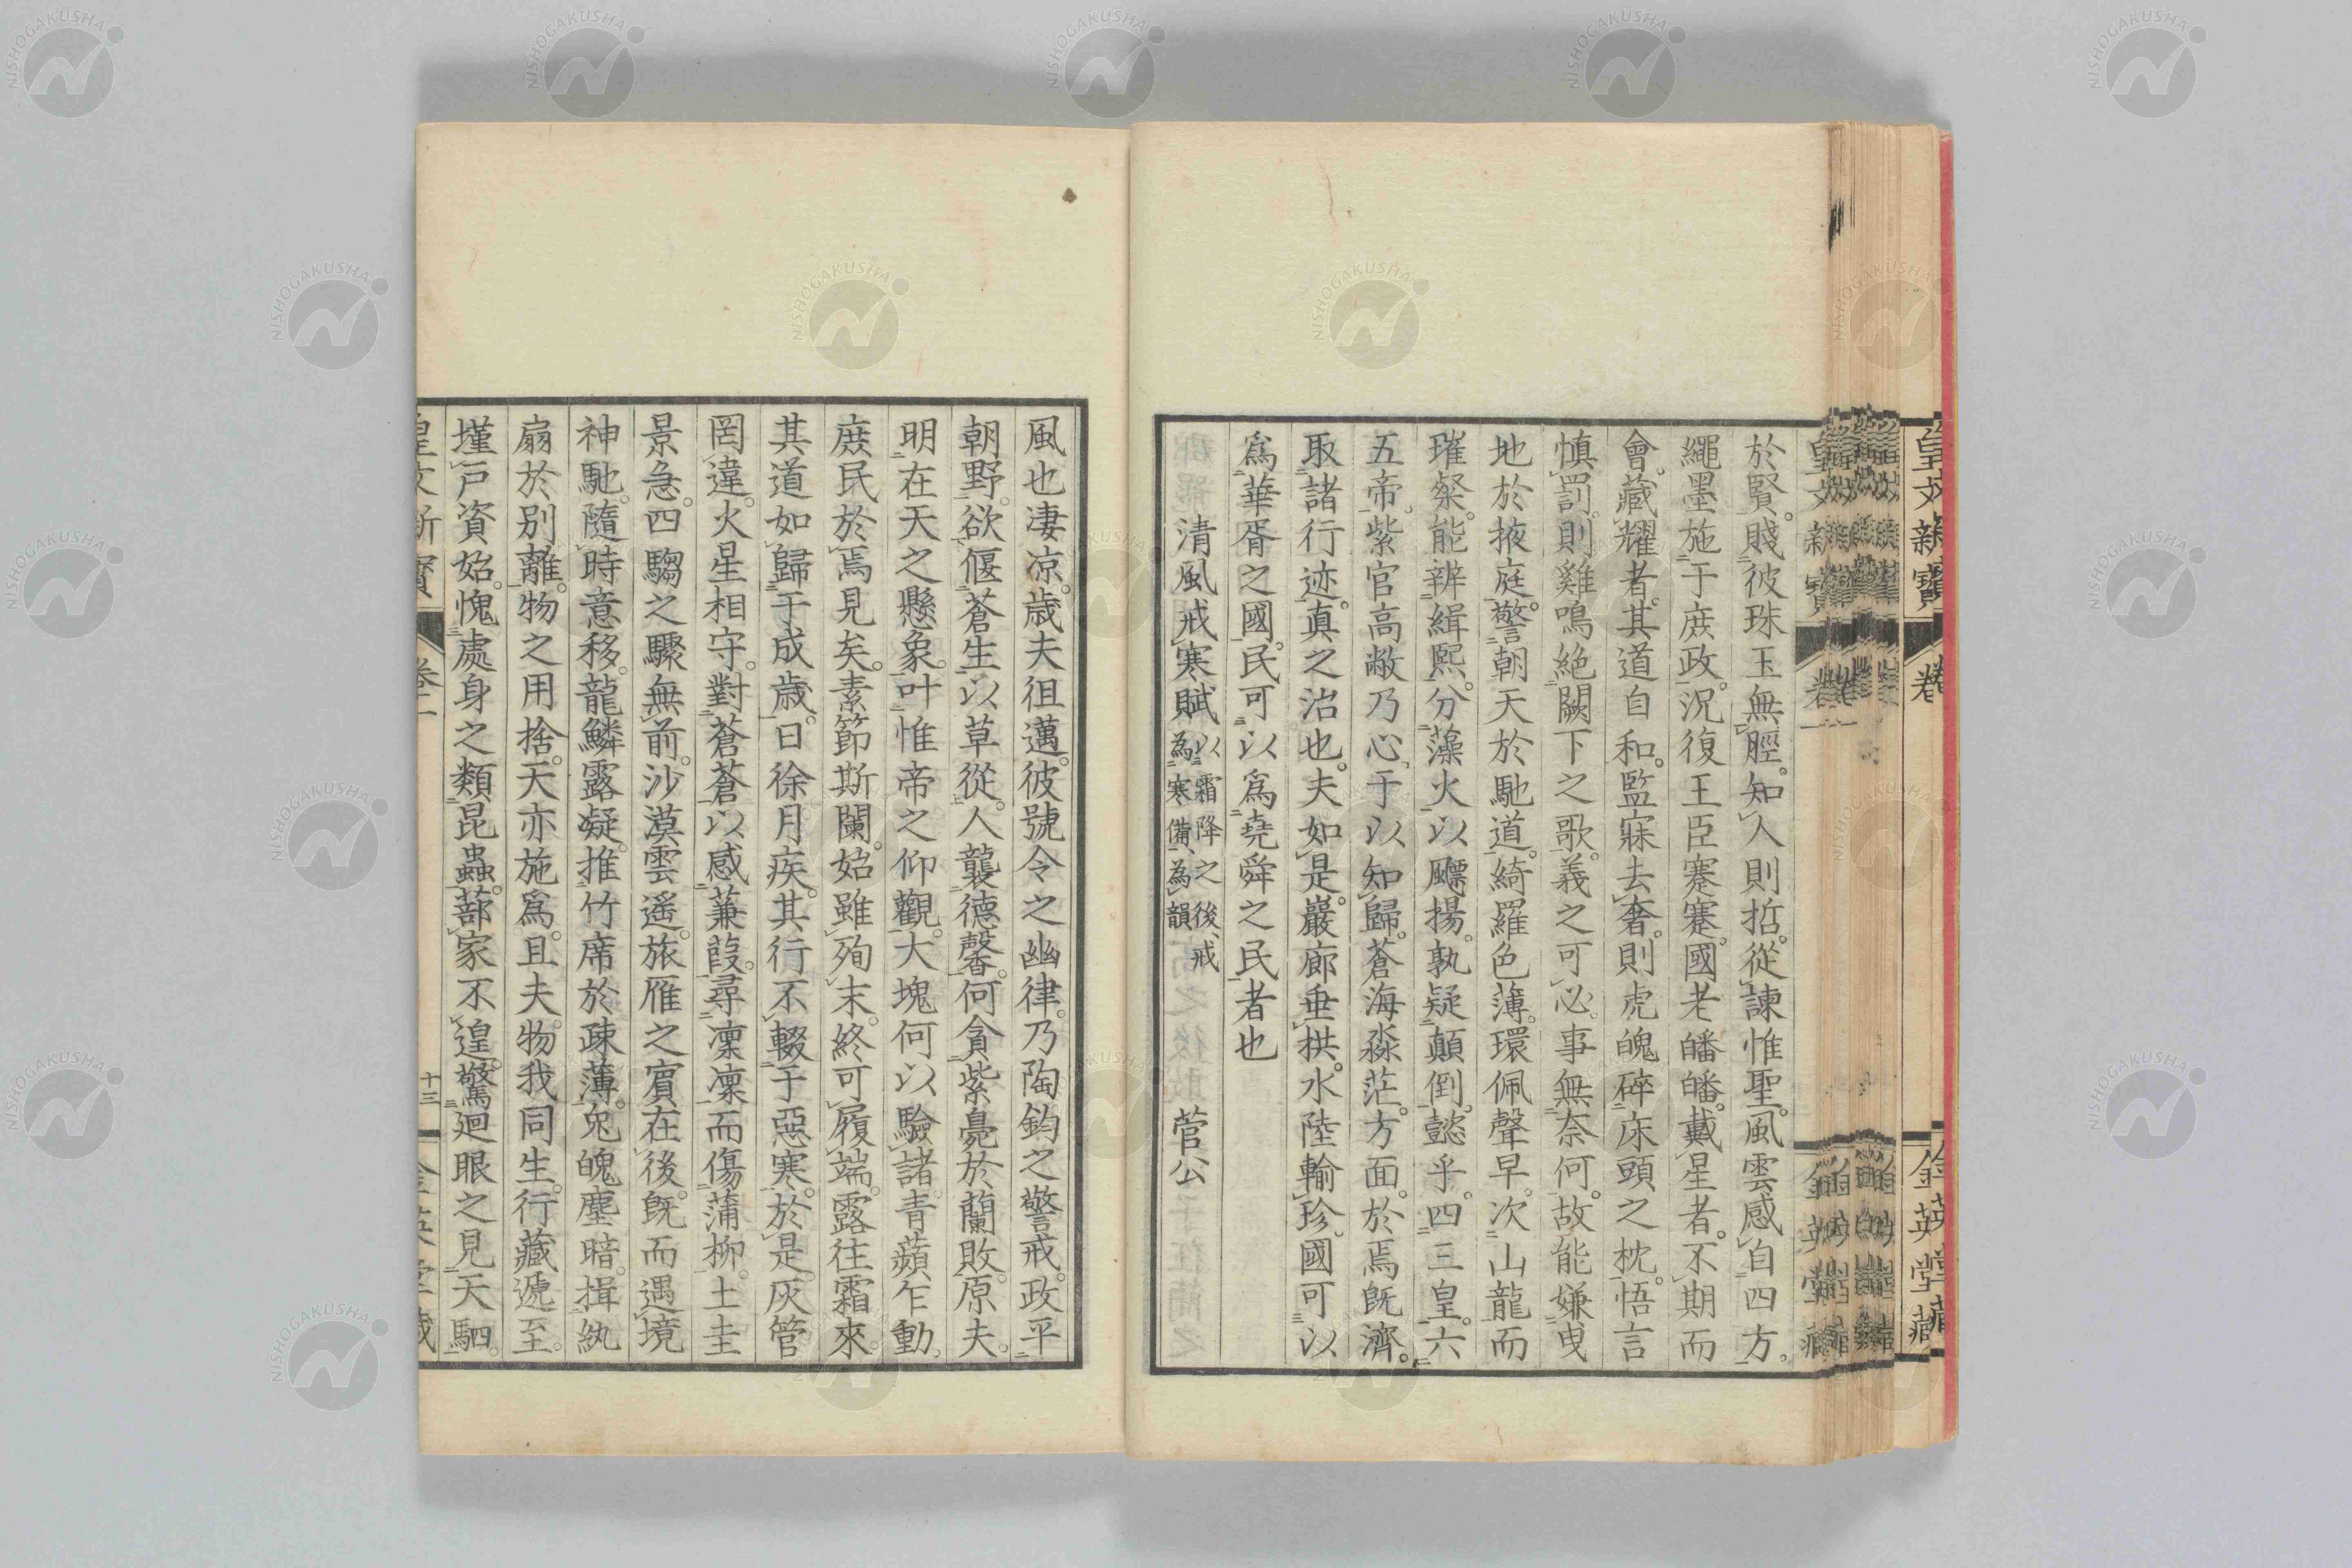 於賢。賤彼珠玉無脛。知人則哲。從諫惟聖。風雲感自四方。
繩墨施于庶政。況復王臣蹇蹇。國老皤皤。戴星者。不期而
會。藏耀者。其道自和。監寐去奢。則虎魄碎床頭之枕。悟言
慎罰。則雞鳴絶闕下之歌。義之可必。事無奈何。故能嫌曳
地於掖庭。警朝天於馳道。綺羅色薄。環佩聲早。次山龍而
璀粲。能辨緝熙。分藻火以飃揚。孰疑顛倒。懿乎。四三皇。六
五帝。紫宮高敞乃心、于以知歸。蒼海淼茫。方面。於焉既濟。
取諸行迹。真之治也。夫如是。巖廊垂拱。水陸輸珍、國可以
爲華胥之國。民可以爲堯舜之民者也
清風戒寒賦 以霜降之後、戒爲寒備、爲韻 菅公
風也淒凉。歲夫徂邁。彼號令之幽律。乃陶鈞之警戒。政平
朝野。欲偃蒼生以草從。人襲德馨。何貪紫臭於蘭敗。原夫。
明在天之懸象。叶惟帝之仰觀。大塊何以驗諸。青蘋乍動。
庶民於焉見矣。素節斯闌。始雖殉末。終可履端。露往霜來。
其道如歸于成歲。日徐月疾。其行不輟于惡寒。於是。灰管
罔違。火星相守。對蒼蒼以感蒹葭。尋凜凜而傷蒲柳。土圭
景急。四騶之驟無前。沙漠雲遥。旅雁之賓在後。既而遇境
神馳。隨時意移。龍鱗露凝。推竹席於疎薄。兔魄塵暗。揖紈
扇於別離。物之用捨。天亦施爲。且夫。物我同生。行藏遞至。
墐戸資始。愧處身之類昆蟲。蔀家不遑。驚廻眼之見天駟。
皇文新寳 卷二 十三 金英堂藏